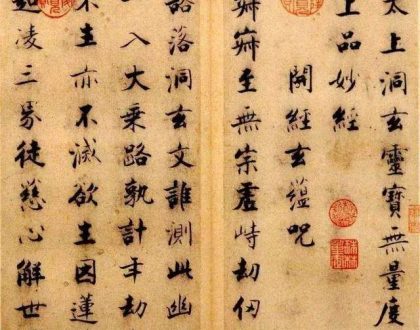 太上洞玄靈寶無量度
上品妙經
開經玄蘊咒
寂寂至無宗虛峙劫仞
豁落洞玄文誰測此幽
一入大乘路孰計年劫
不生亦不滅欲生因蓮
超凌三界徒慈心解世